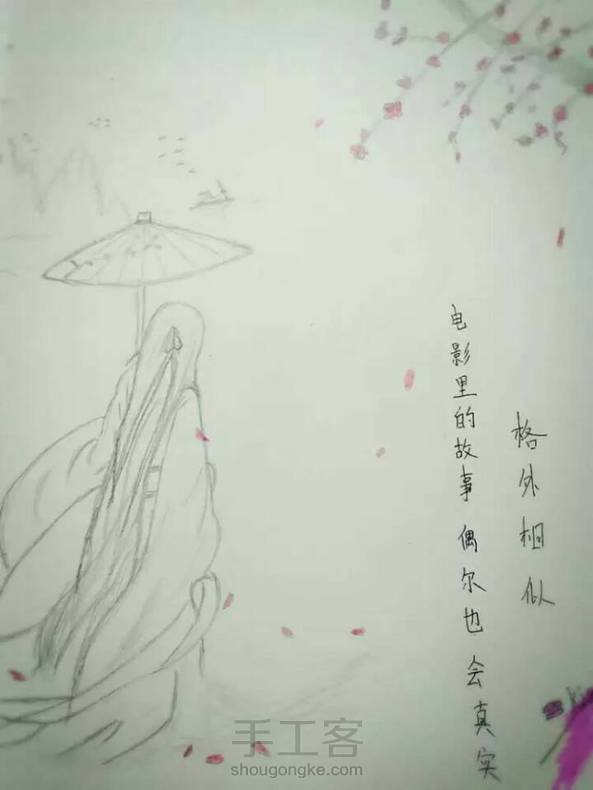 格外相似
电影里的故事 偶尔也会真实
手工客
shougongke.com